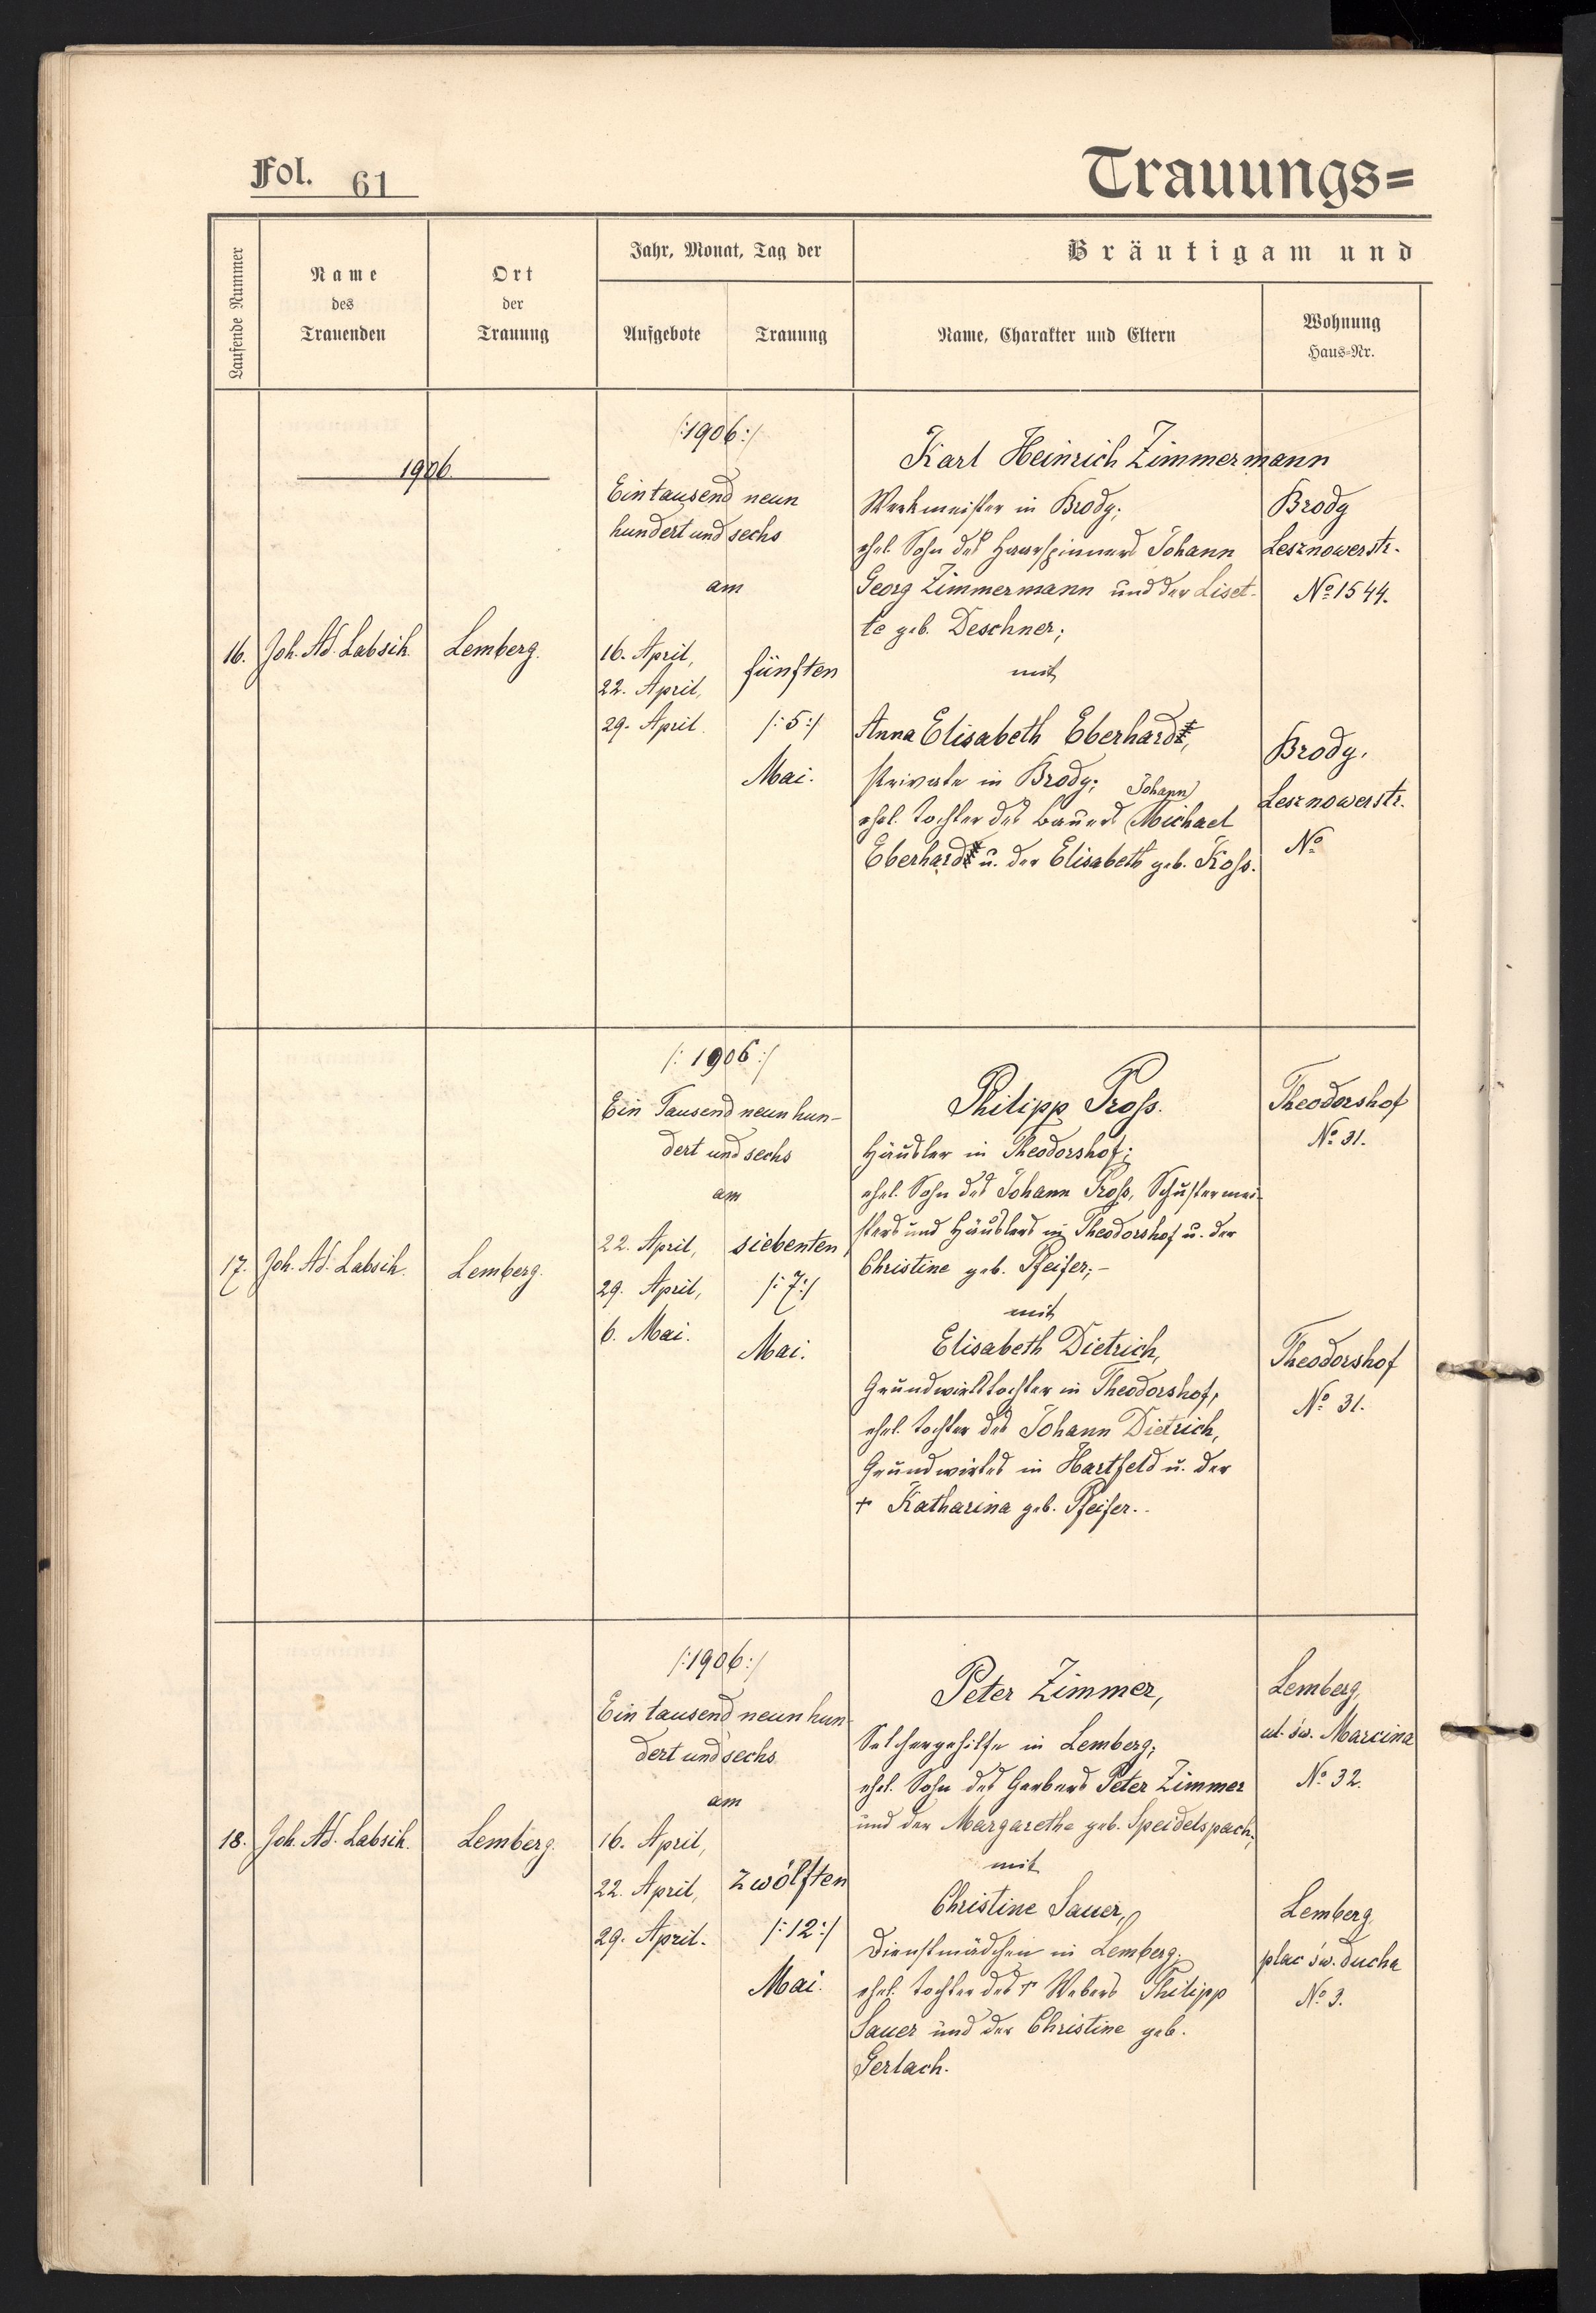 Fol. 61
Trauungs=
Laufende Nummer
Name
des
Trauenden
Ort
der
Trauung
Jahr, Monat, Tag der
Aufgebote
Trauung
Bräutigam und
Name, Charakter und Eltern
Wohnung
Haus=Nr.
1906.
16.
Joh. Ad. Labsik.
Lemberg.
/:1906:/
Eintausend neun
hundert und sechs
am
16. April,
22. April,
29. April.
fünften
/:5:/
Mai.
Karl Heinrich Zimmermann
Werkmeister in Brody;
ehel. Sohn des Haarspinners Johann
Georg Zimmermann und der Liset-
te geb. Deschner;
mit
Anna Elisabeth Eberhard,
Private in Brody; Johann
ehel. Tochter des Bauers Michael
Eberhard u. der Elisabeth geb. Koss.
Brody
Lesznowerstr.
No 1544.
Brody.
Lesznowerstr.
No
17.
Joh. Ad. Labsik.
Lemberg.
/:1906:/
Ein Tausend neun hun-
dert und sechs
am
22. April,
29. April,
6. Mai.
siebenten
/:7:/
Mai.
Philipp Pross.
Häusler in Theodorshof;
ehel. Sohn des Johann Pross, Schustermei-
sters und Häuslers in Theodorshof u. der
Christine geb. Pfeifer;-
mit
Elisabeth Dietrich,
Grundwirtstochter in Theodorshof,
ehel. Tochter des Johann Dietrich,
Grundwirtes in Hartfeld u. der
† Katharina geb. Pfeifer.
Theodorshof
No 31.
Theodorshof
No 31.
18.
Joh. Ad. Labsik.
Lemberg.
/:1906:/
Ein tausend neun hun-
dert und sechs
am
16. April,
22. April,
29. April.
zwölften
/:12:/
Mai.
Peter Zimmer,
Selchergehilfe in Lemberg;
ehel. Sohn des Gerbers Peter Zimmer
und der Margarethe geb. Speidelspach;
mit
Christine Sauer,
Dienstmädchen in Lemberg;
ehel. Tochter des † Webers Philipp
Sauer und der Christine geb.
Gerlach.
Lemberg,
ul. św. Marcina
No 32.
Lemberg
plac św. Ducha
No 3.